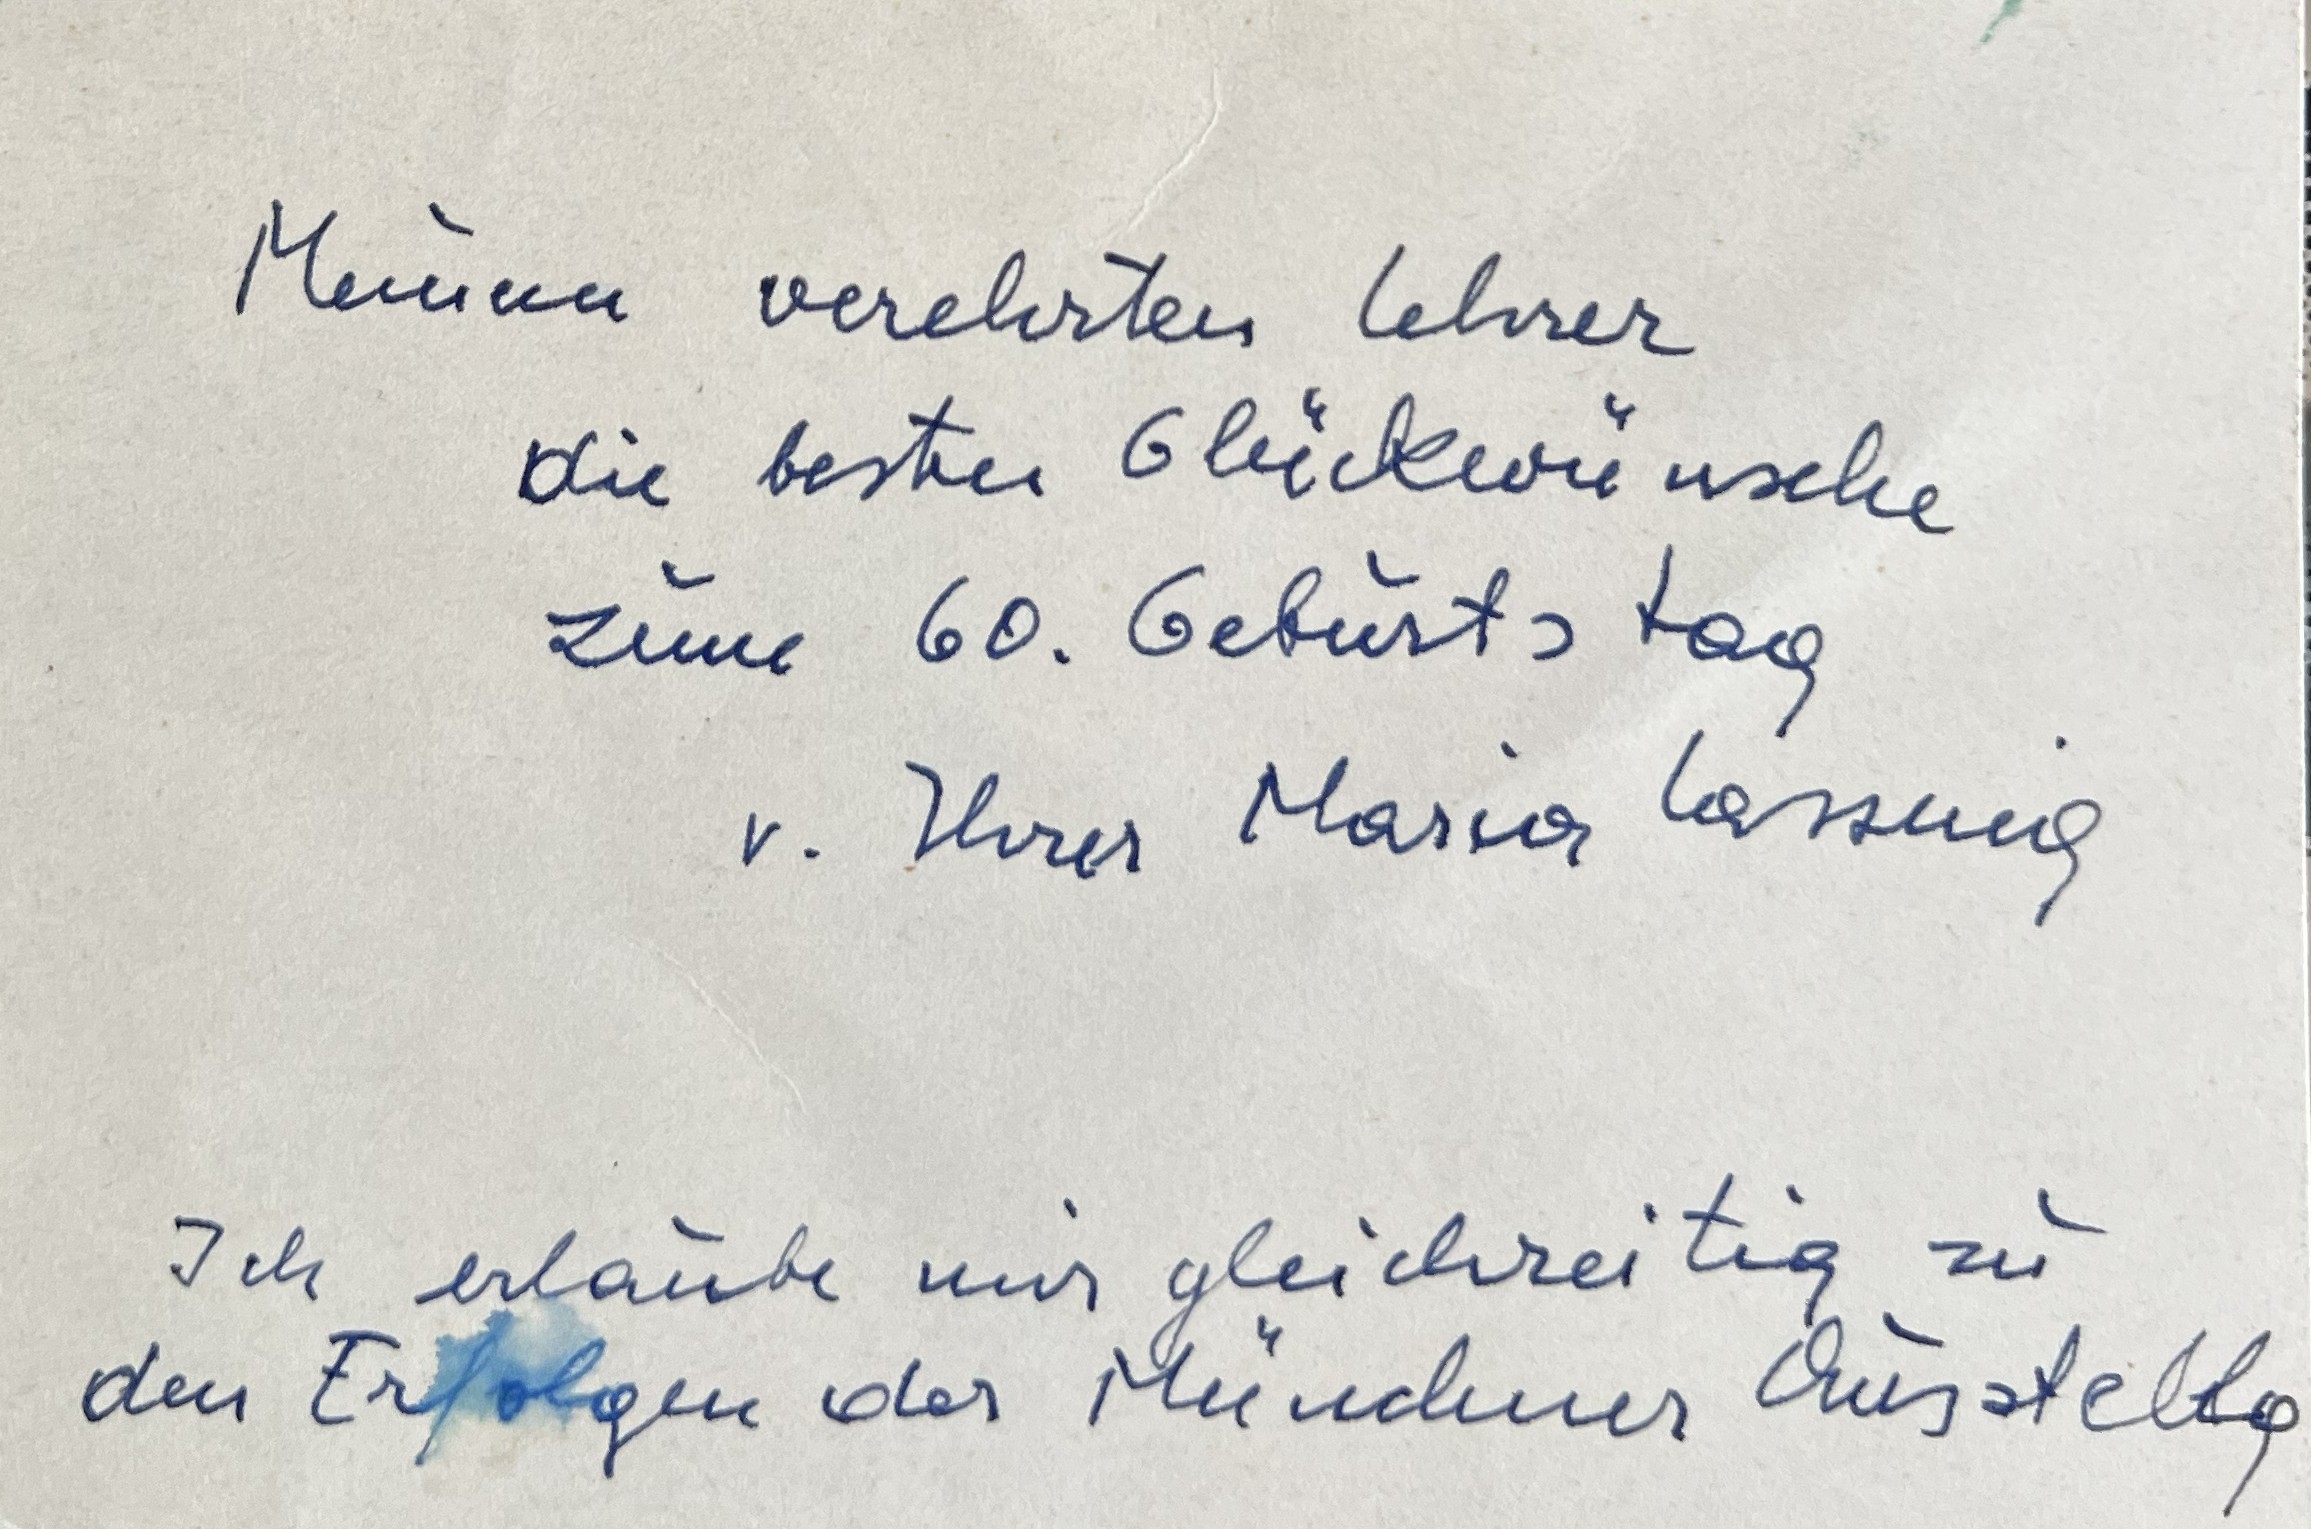 Meinem verehrten Lehrer
die besten Glückwünsche
zum 60. Geburtstag
v. Ihrer Maria Lassnig
Ich erlaube mir gleichzeitig zu
den Erfolgen der Münchner Ausstellg